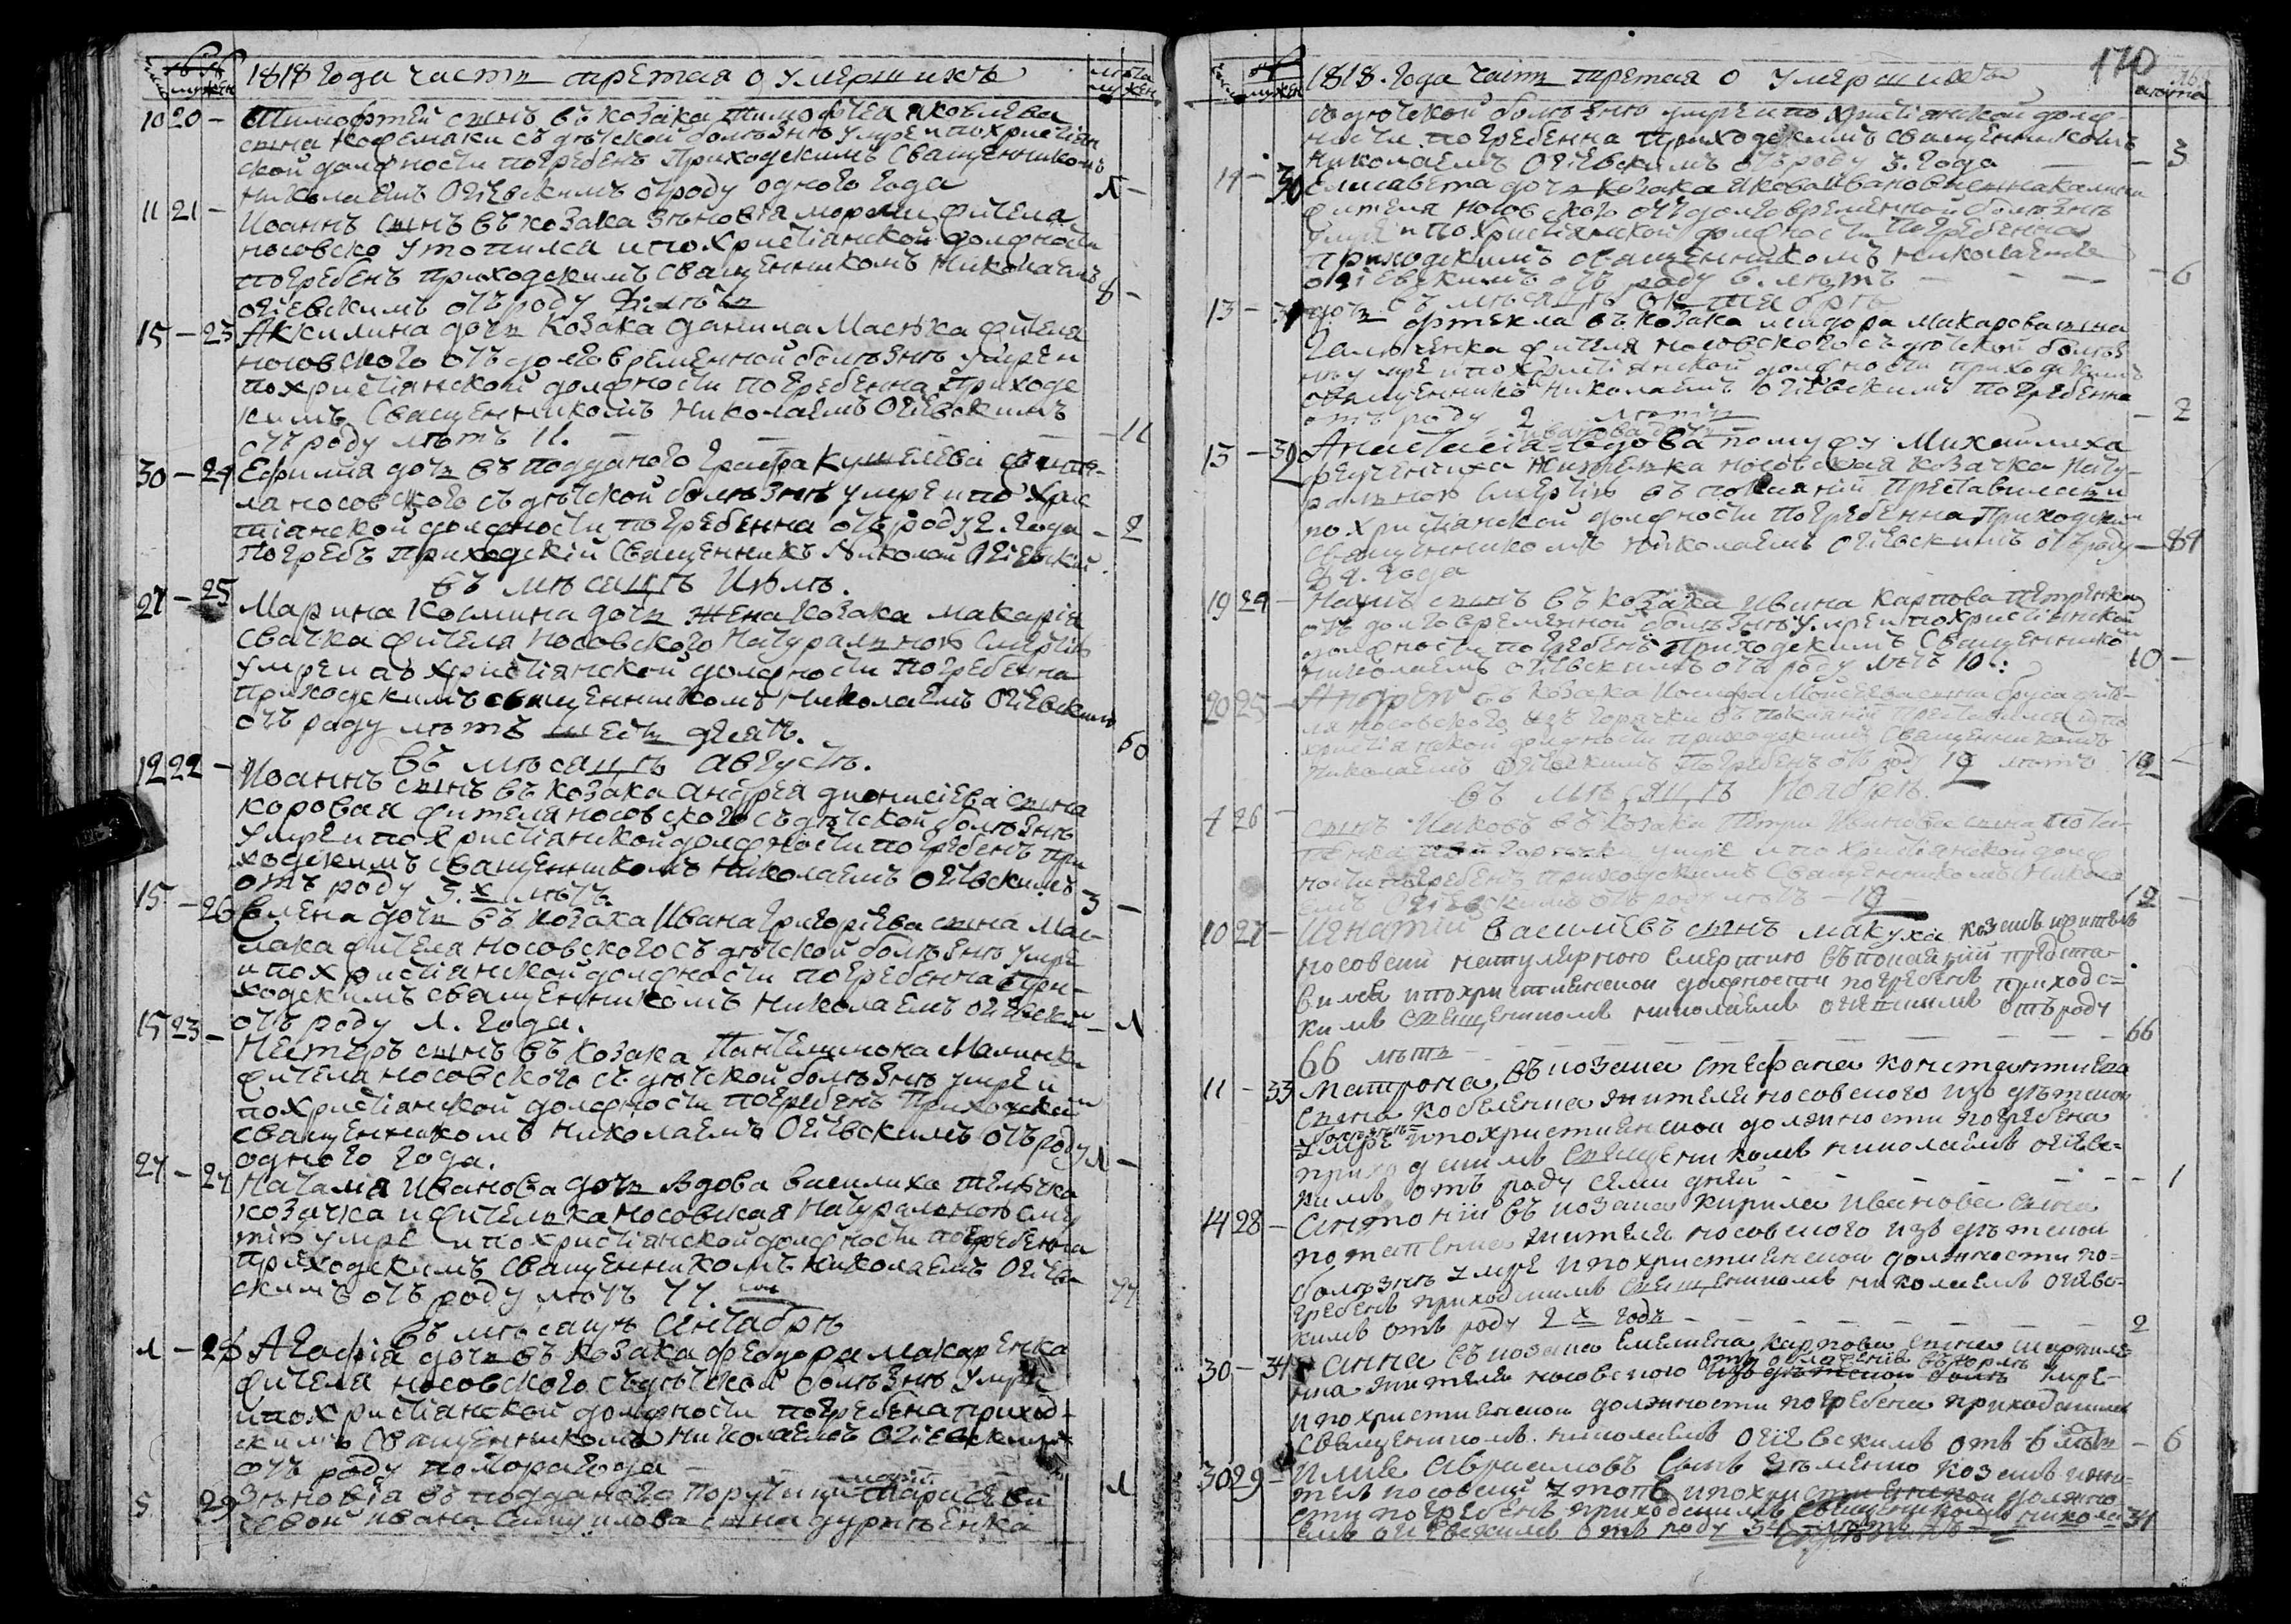 1818 Года часть третая о умершихъ
лѣта
муж жен
10 20 - Тимофтей сынъ въ козака Тимофтея Яковлева
сына съ дѣтской болѣзнѣ умре и по христіян
ской должности погребенъ Приходскимъ Священникомъ
Николаемъ Огіевскимъ отъ роду одного года 1 -
11 21 - Иоаннъ сынъ въ козака Зѣновія жителя
носовско утопился и по Христіанской должности
погребенъ приходскимъ священникомъ Николаемъ
огіевскимъ отъ роду лѣтъ 8 -
15 - 23 Аккилина дочь козака Данила жителя
носовского отъ долговременной болѣзнѣ умре и
по христіянской должности погребенна Приходс
кимъ Священникомъ Николаемъ Огіевскимъ
отъ роду лѣтъ 11. - 11
30 - 24 Ефимия дочь въ подданого Графа Кушелева жите-
ля носовского съ дѣтской болѣзнѣ умре и по Хрис
тіанской должности погребенна отъ роду 2. Года - 2
Погребъ приходскій Священникъ Николай Огіевский.
въ мѣсяцѣ Июлѣ.
27 - 25 Марина Космина дочь жена козака макарія
жителя Носовского Натуралною смертію
умре и въ христіянской должности погребенна
приходскимъ священникомъ Николаемъ Огіевскимъ
отъ роду лѣтъ шесть десятъ. 60
въ мѣсяцѣ августѣ.
12 22 - Иоаннъ сынъ въ козака Андрея Дионисіева сына
коровая жителя носовского съ дѣтской болѣзнѣ
умре и по Христіянской должности погребенъ при
ходскимъ священникомъ Николаемъ огіевскимъ
отъ роду 3.х лѣтъ. 3 -
15 - 26 Елена дочь въ козака Ивана Григоріева сына Мас-
лака жителя носовского съ дѣтской болѣзнѣ умре
и по христіянской должности погребенна При-
ходскимъ священникомъ Николаемъ огіевски
отъ роду 1. Года. - 1
15 23 - Нестеръ сынъ въ козака Пантелимона
жителя носовского съ дѣтской болѣзнѣ умре и
по христіянской должности погребенъ Приходски
священникомъ Николаемъ Огіевскимъ отъ роду
одного года. 1 -
27 - 27 Наталія Иванова дочь вдова василиха
козачка и жителька носовская Натуралною смер
тію умре и по христіянской должности погребенна
приходскимъ священникомъ Николаемъ Огіев
скимъ отъ роду лѣтъ 77. 77
въ мѣсяцѣ Сентабрѣ
1 - 28 Агафія дочь въ козака Феодора Макаренка
жителя носовского съ дѣтской болѣзнѣ умре
и по христіянской должности погребена приход-
скимъ Священникомъ Николаемъ Огіевскимъ
отъ роду полтора года 1
5 29 Зѣновія въ подданого Поручици Маріи
Ивана сына
170
1818. Года часть третая о умершихъ
съ дѣтской болѣзнѣ умре и по христіянской долж-
ности погребенна приходскимъ священникомъ
Николаемъ Огіевскимъ отъ роду 3. Года - 3
19 - 30 Елисавета дочь козака Якова
жителя носовского отъ долговременной болѣзнѣ
умре и по Христіянской должности Погребенна
приходскимъ священникомъ Николаемъ
огіевскимъ отъ роду 6. лѣтъ - 6
въ мѣсяцѣ октяобрѣ
13 - 31 дочь Фтекла въ козака исидора Макарова сына
жителя носовского съ дѣтской болѣз
нѣ умре и по христіянской должности приходскимъ
священникомъ Николаемъ огіевскимъ погребенна
отъ роду 2 лѣти - 2
Иванова дочь
15 - 32 Анастасія вдова по мужу Михайлиха
житєлька носовская козачка Нату-
ральною смертію въ покаяній Преставиласьи
по христіянской должности погребенна Приходски
священникомъ Николаемъ огіевскимъ отъ роду - 84
84. года
19 24 - Наумъ сынъ въ козака Ивана Карпова Петренка
отъ долговременной болѣзнѣ умре и по христіянской
должности погребенъ Приходскимъ Священнико
николаемъ огіевскимъ отъ роду лѣтъ 10: 10 -
20 25 - Андрей въ козака Иосифа Моисеева сына жите-
ля носовского изъ горячки въ покаяній преставился и по
христіянской должности приходскимъ Священникомъ
Николаемъ Огіевскимъ погребенъ отъ роду 19 лѣтъ 19 -
въ мѣсяцѣ Ноабрѣ.
7 26 - сынъ Иаковъ въ козака Петра Иванова сына Поти-
горячки умре и по Христіянской долж
ности погребенъ приходскимъ Священникомъ Никола
емъ Огіевскимъ отъ роду лѣтъ - 19 19 -
10 27 - Игнатій Василіевъ сынъ макуха козакъ и житель
носовски натулярною смертию въ покаяніи предста-
вился и по христианской должности погребенъ приходс=
кимъ священникомъ николаемъ огіевскимъ отъ роду
66 лѣтъ - 66
11 - 33 Матрона, въ козака стефана константиева
сына кобеленка жителя носовского изъ дѣтской
болѣзнѣ
умре и по христианской должности погребена
приходскимъ священникомъ николаемъ огіевс-
кимъ отъ роду семи дней - 1
14 28 - Антоній въ козака кирила Иванова сына
потапенка жителя носовского изъ дѣтской
болѣзнѣ умре и по христианской должности по=
гребенъ приходскимъ священникомъ николаемъ огіевс-
кимъ отъ роду 2 х годъ - 2
30 - 34 анна въ козака Емелияна карпова сына
жителя носовского умре-
и по христианской должности погребена приходскимъ
священникомъ николаемъ огіевскимъ отъ 6 лѣтъ - 6
30 29 - Илия Аврамовъ сынъ козакъ и жи-
тель носовский утопъ и по христианской должно
сти погребенъ приходскимъ священникомъ никола
емъ огіевскимъ отъ роду 34 лѣтъ 34